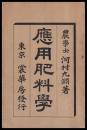 農學士 河村九淵著
應用肥料學
東京 裳華房發行